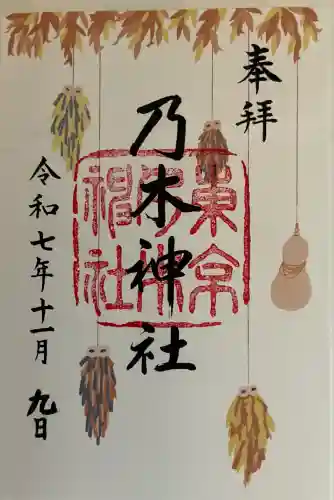 奉拝
乃木神社
東京
乃木神
社
令和七年十一月九日